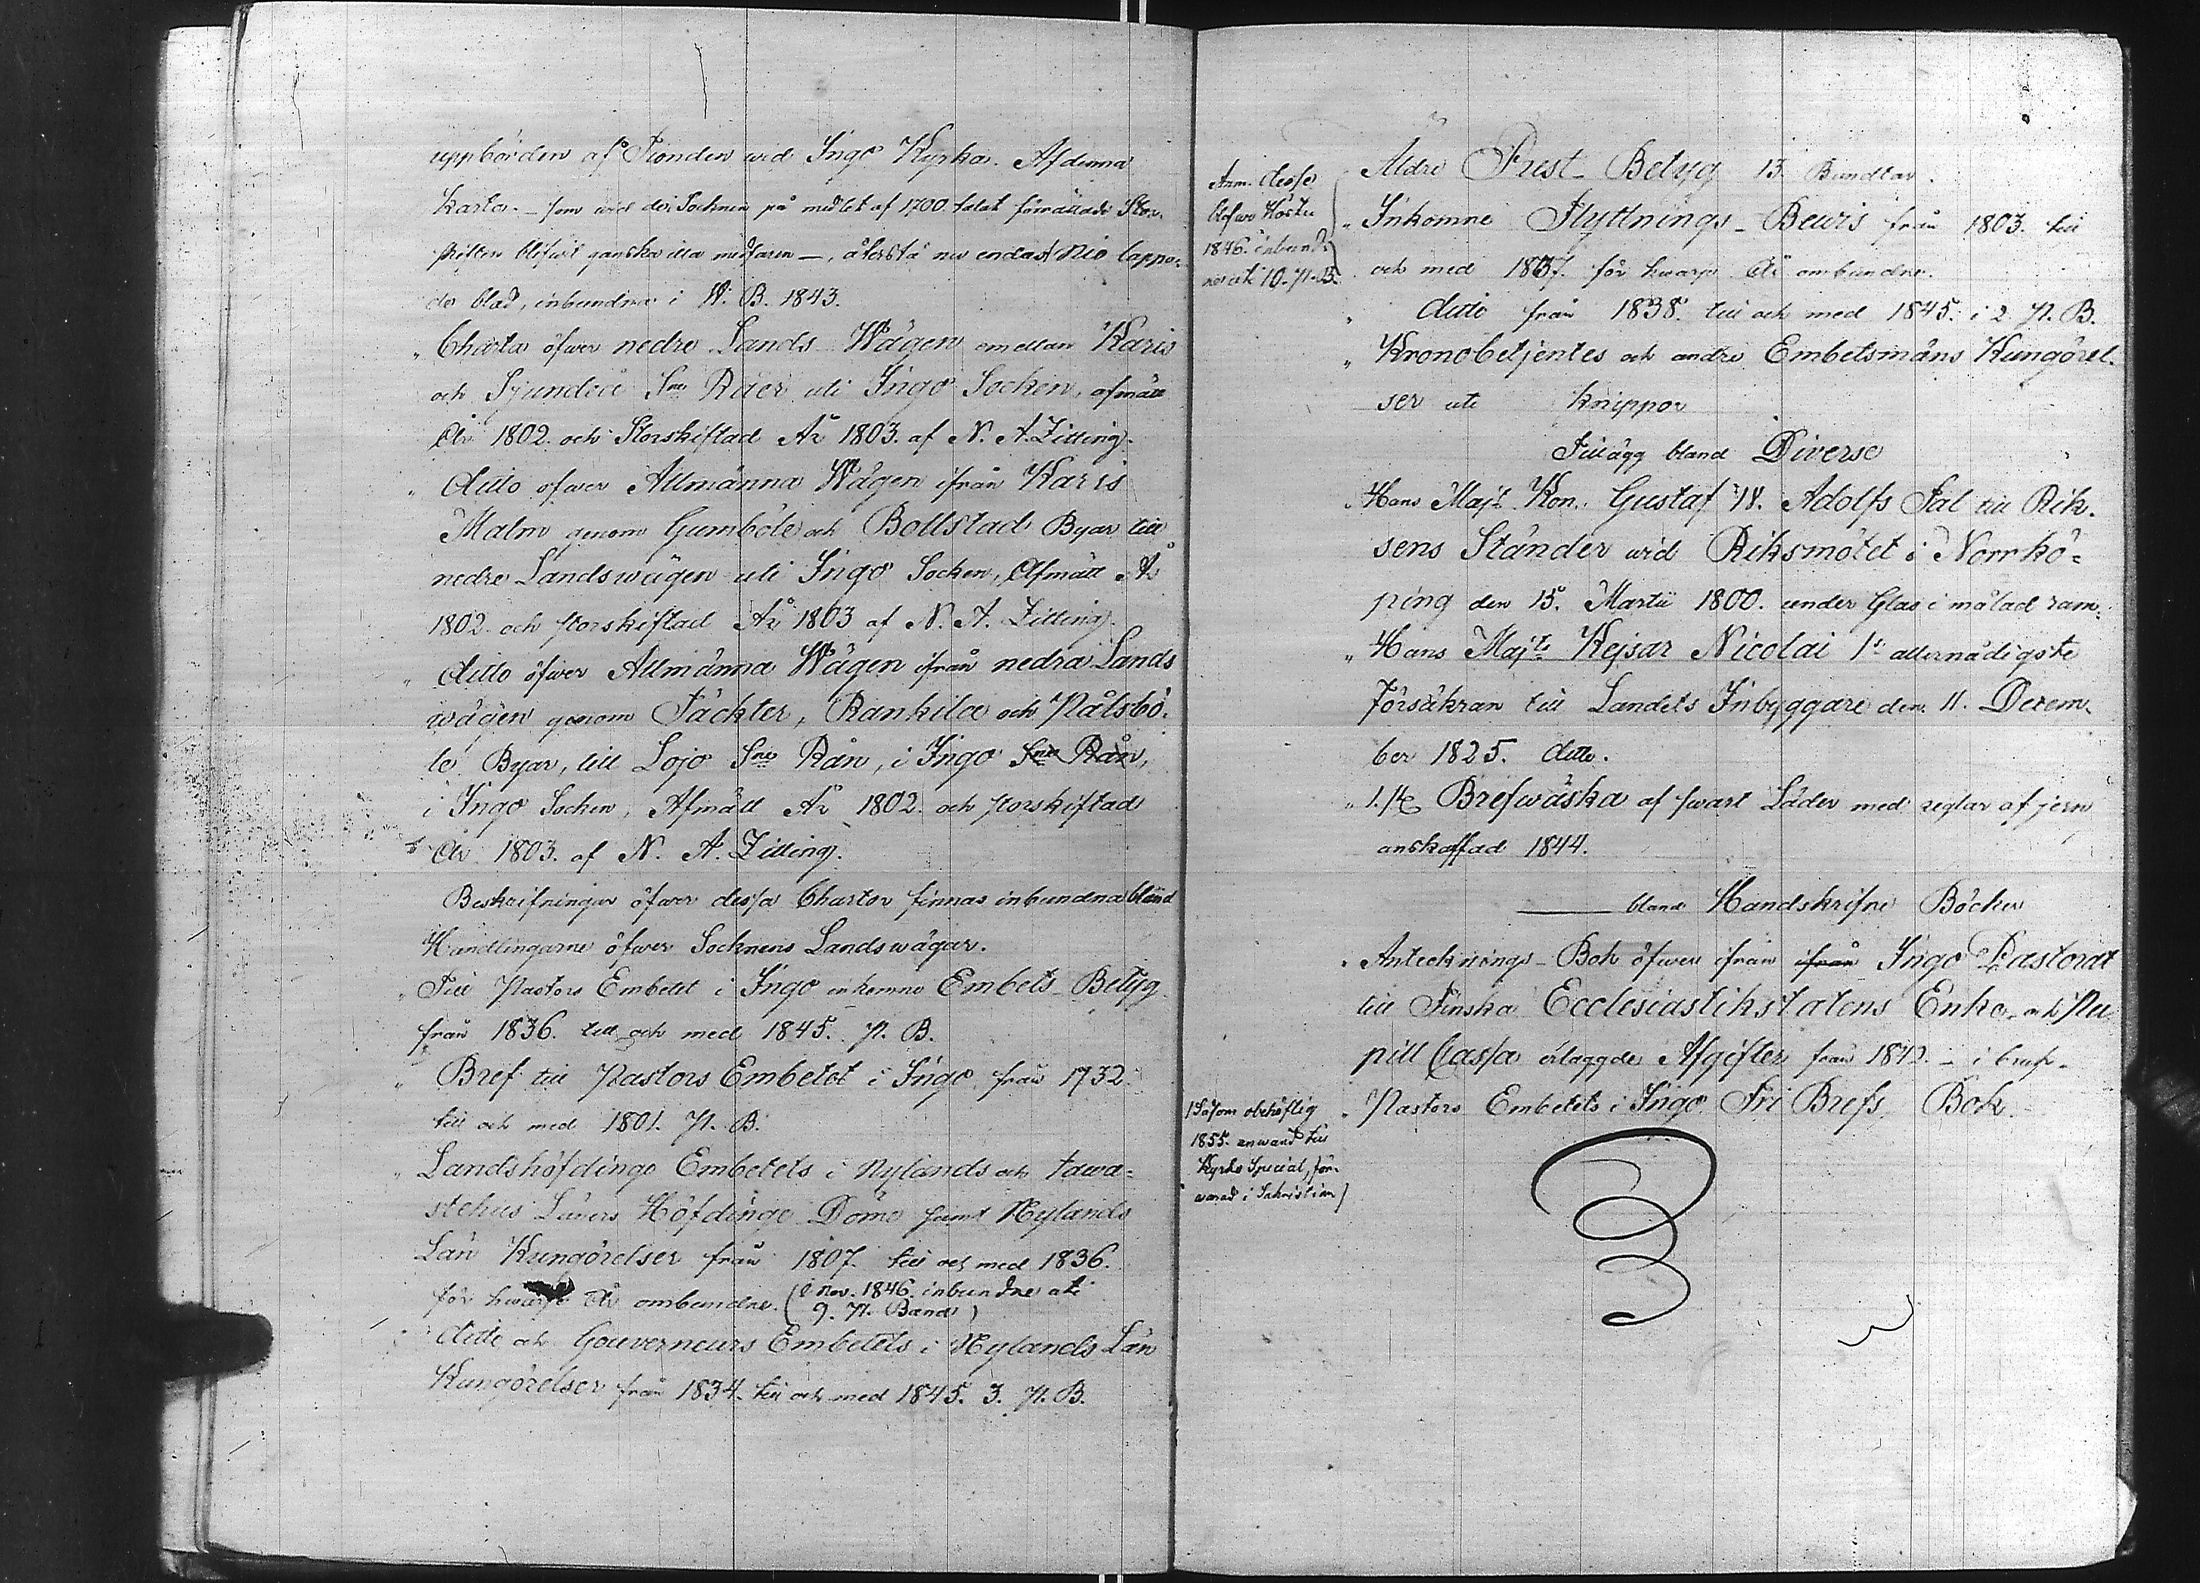 uppbörden af Tionden wid Ingo Kyrka. Af denna
Karta – som wid de i Socknen på medlet af 1700 talet förrättade Stor-
skiften blifwit ganska illa medfaren –, återstå nu endast Nio lappa-
de blad, inbundna i W. B. 1843.
" Charta öfwer nedre Lands Wägen emellan Karis
och Sjundeå Sne Råer uti Ingo Socken, afmätt
År 1802 och Storskiftad År 1803. af N. A. Zitting.
" ditto öfwer Allmänna Wägen ifrån Karis
Malm genom Gumböle och Bollstad Byar till
nedre Landswägen uti Ingo Socken, Afmätt År
1802 och storskiftad År 1803 af N. A. Zitting.
" ditto öfwer Allmänna Wägen ifrån nedra Lands
wägen genom Täckter, Rankila och Pålsbö-
le Byar, till Lojo Sne Rån, i Ingo Sne Rån,
i Ingo Socken, Afmätt År 1802. och storskiftad
År 1803. af N. A. Zitting.
Beskrifningar öfwer dessa Chartor finnas inbundna bland
Handlingarne öfwer Socknens Landswägar.
" Till Pastors Embetet i Ingo inkomne Embets-Betyg
från 1836. till och med 1845. P. B.
" Bref till Pastors Embetet i Ingo från 1732.
till och med 1801. P. B.
" Landshöfdinge Embetets i Nylands och Tawa-
stehus Läners Höfdinge Döme samt Nylands
Län Kungörelser från 1807. till och med 1836.
för hwarje År ombundne. (i Nov. 1846. inbundne uti
9. P. Band)
" ditto och Gouverneurs Embetets i Nylands Län
Kungörelser från 1834. till och med 1845. 3. P. B.
Anm. desse
blefwo Hösten
1846. inbund-
ne uti 10. P. B.
Äldre Prest-Betyg 13. Bundtar.
" Inkomne Flyttnings-Bewis från 1803. till
och med 1837. för hwarje År ombundne.
" ditto från 1838. till och med 1845. i 2 P. B.
" Kronobetjentes och andre Embetsmäns Kungörel-
ser uti Knippor
Tillägg bland Diverse
" Hans Majt. Kon. Gustaf IV. Adolfs Tal till Rik-
sens Ständer wid Riksmötet i Norrkö-
ping den 15. Martii 1800. under Glas i målad ram.
" Hans Majts Kejsar Nicolai 1s allernådigste
Försäkran till Landets Inbyggare den 11. Decem-
ber 1825. ditto.
" 1. st. Brefwäska af swart Läder med reglar af jern
anskaffad 1844.
bland Handskrifne Böcker
" Antecknings-Bok öfwer ifrån ifrån Ingo Pastorat
till Finska Ecclesiastikstatens Enke- och Pu
pill Cassa erlaggde Afgifter från 1842. – i bruk.
" Pastors Embetets i Ingo Fri Brefs Bok.
(Såsom obehöflig
1855. anwänd till
Kyrko Special, för-
warad i Sakristian)